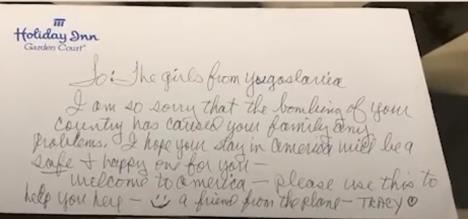 Holiday Inn
Garden Court
To: The girls from Yugoslavia
I am so sorry that the bombing of your
country has caused your family any
problems. I hope your stay in America will be a
safe + happy one for you —
Welcome to America — please use this to
help you here — a friend from the plane — TRACY